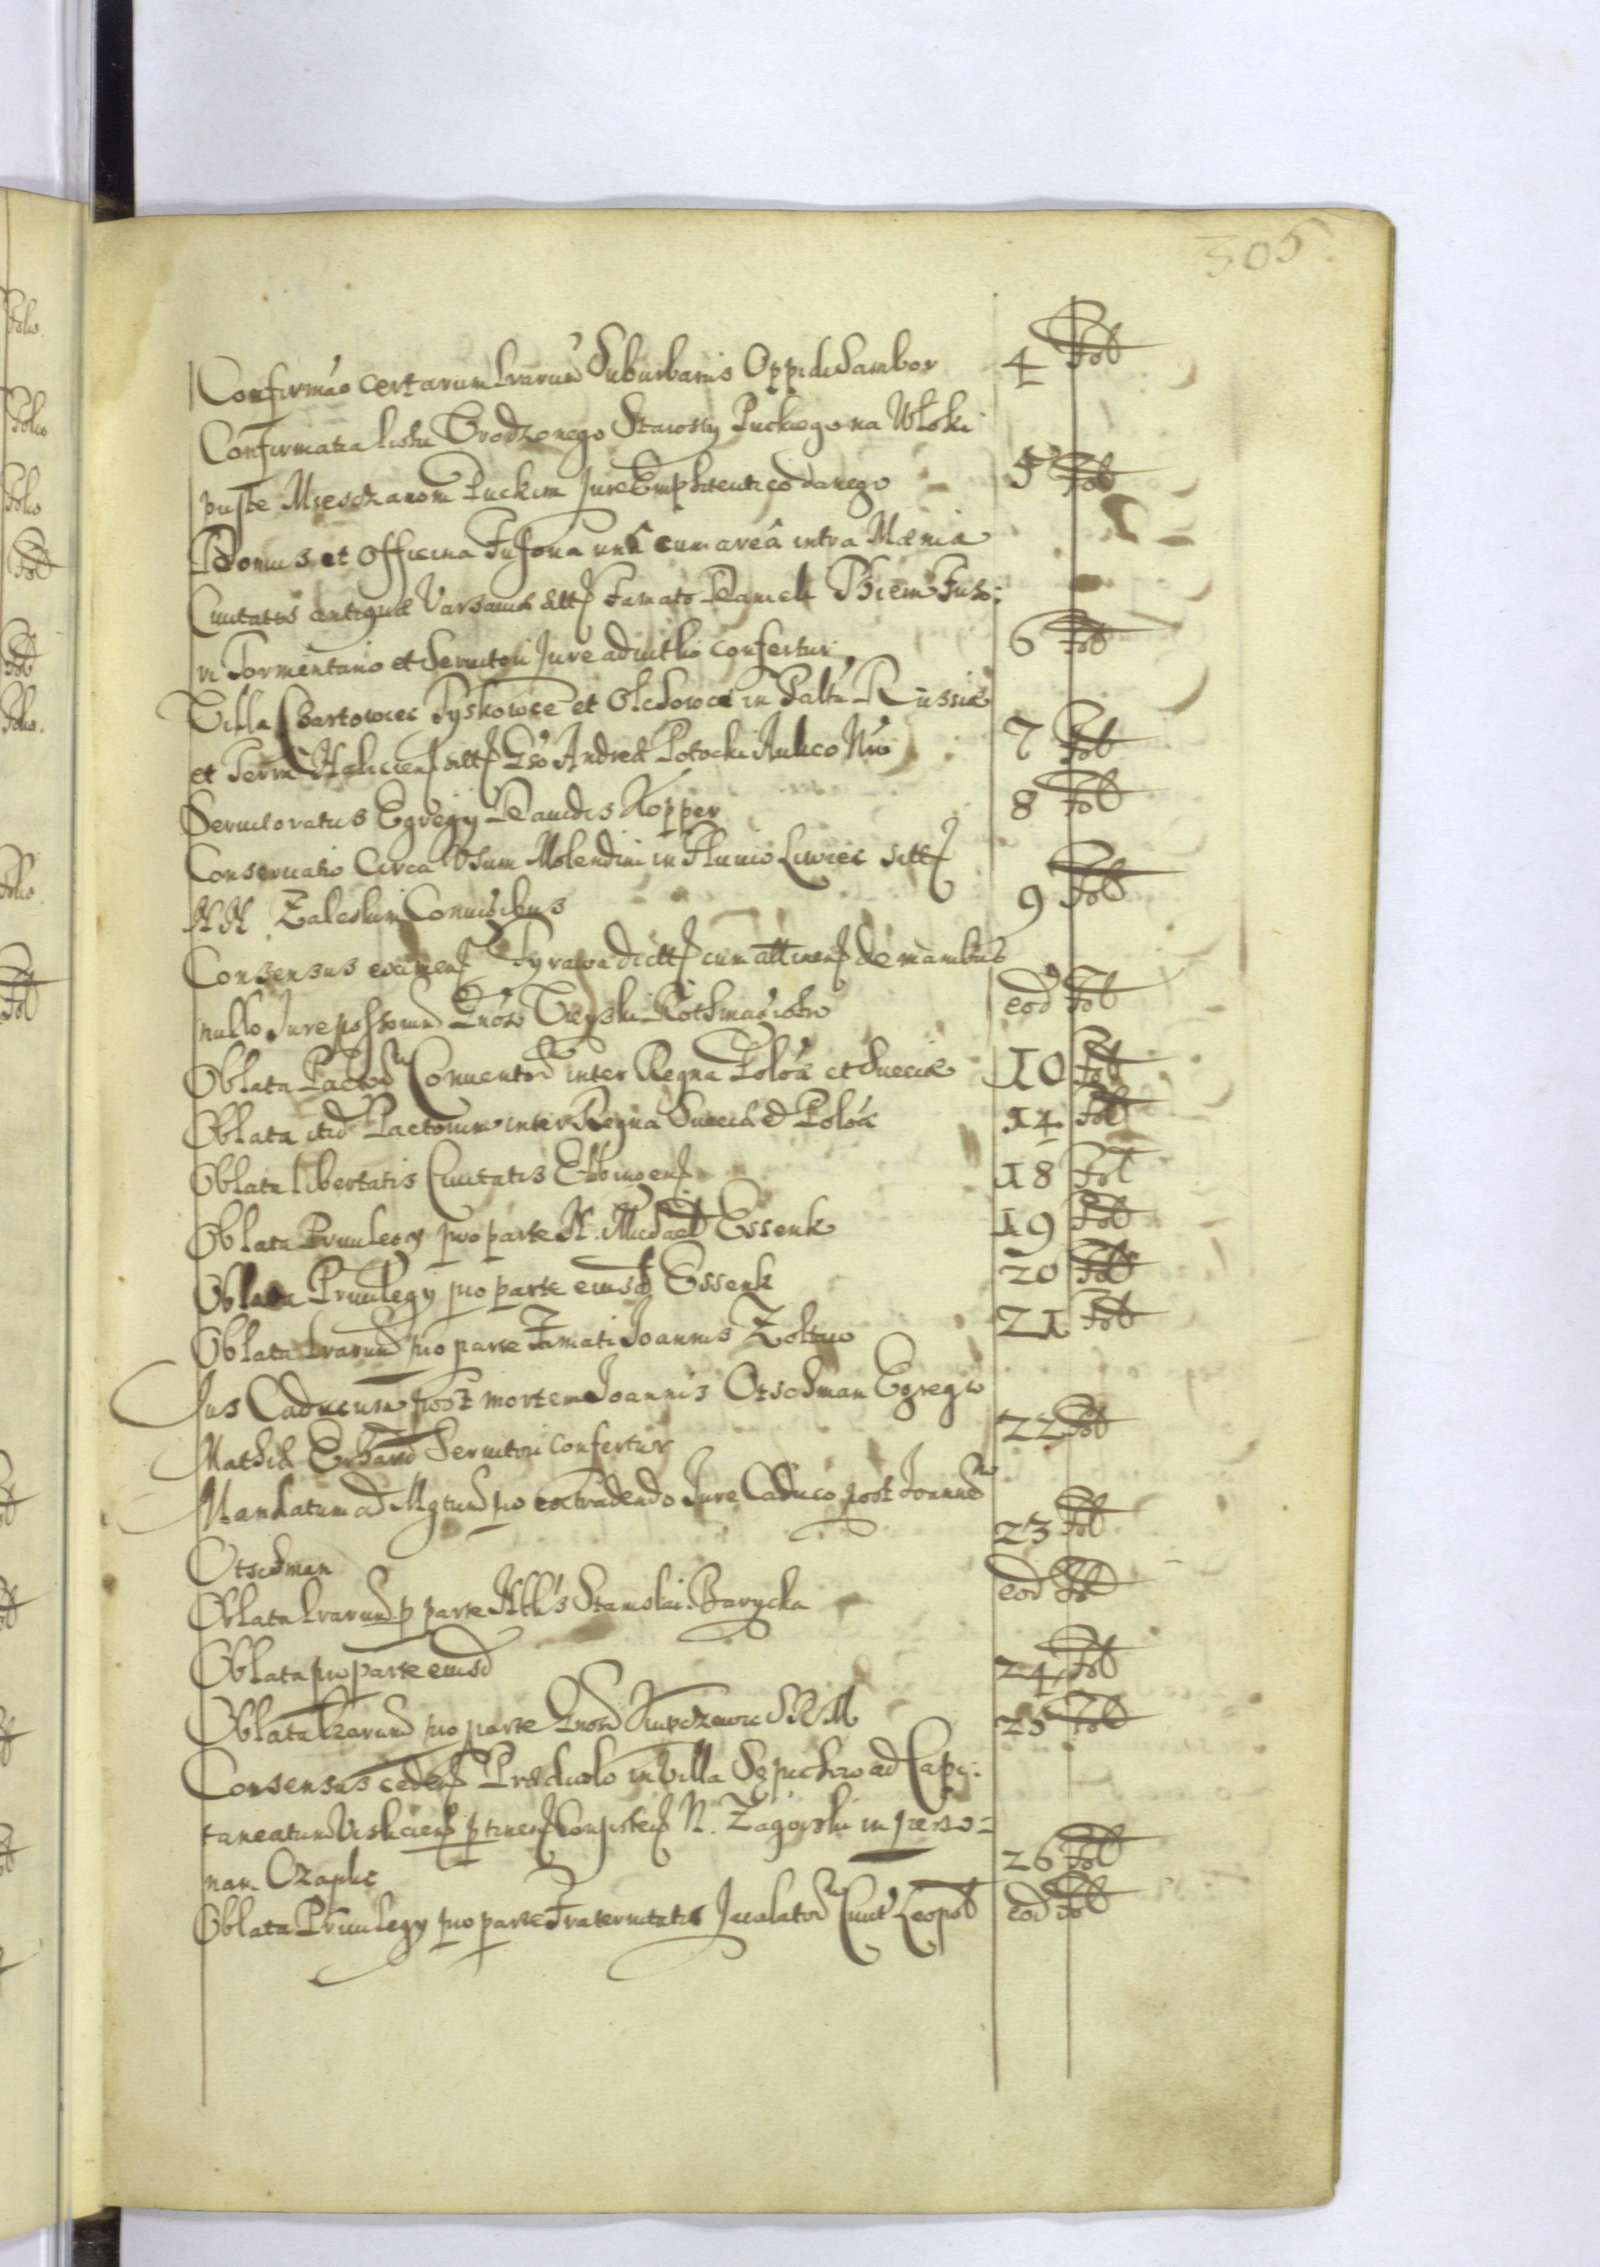 305
Confirmao certarum lrarum Suburbanis Oppidi Sambor 4 Fol
Confirmatia listu Vrodzonego Starosty Puckiego na Wloki
puste Miesczanom Puckim Jure Emphiteutico danego 5 Fol
Domus et Officina Fusoria una cum areâ intra Mænia
Ciuitatis antiquæ Varsauiæ Famato Danieli Thiem Fuso:
ri Tormentario et Seruitori Jure aduitlio confertur 6 Fol
Villa Chartowiec Tyskowce et Olchowce in Paltu Russiæ
et Terra Haliciens Gso Andreæ Potocki Aulico Nro 7 Fol
Seruitoratus Egregy Dauidis Kopper 8 Fol
Conseruatio Circa Vsum Molendini in Fluuio Liwiec
NN Zaleskim Coniugibus 9 Fol
Consensus eximen Tyrawa cum attinen de manibus
nullo Jure possorum Gnoso Rothmagistro eod Fol
Oblata Pactor Conuentor inter Regna Poloa et Sueciæ 10 Fol
Oblata itid Pactorum inter Regna Sueciæ et Poloa 14 Fol
Oblata libertatis Ciuitatis Elbingen 18 Fol
Oblata Priuilegy pro parte N. Michael Essenk 19 Fol
Oblata Priuilegy pro parte eiusd Essenk 20 Fol
Oblata lrarum pro parte Famati Joannis Zoltuo 21 Fol
Jus Caducum post mortem Joannis Otschman Egregio
Mathiæ Erhard Seruitori confertur 22 Fol
Mandatum ad Mgtum pro extradendo Jure Caduco post Joannem
Otschman 23 Fol
Oblata lrarum p parte Nblis Stanislai Barycka eod Fol
Oblata pro parte eiusd 24 Fol
Oblata lrarum pro parte Gnosi Kupczewic SRM 25 Fol
Consensus ceden Prædiolo in Villa Sepichow ad Capi:
taneatum Visliciens ptinen N. Zagorski in perso=
nam Czaplic 26 Fol
Oblata Priuilegy pro parte Fraternitatis Jaculator Ciuit Leopol eod Fol